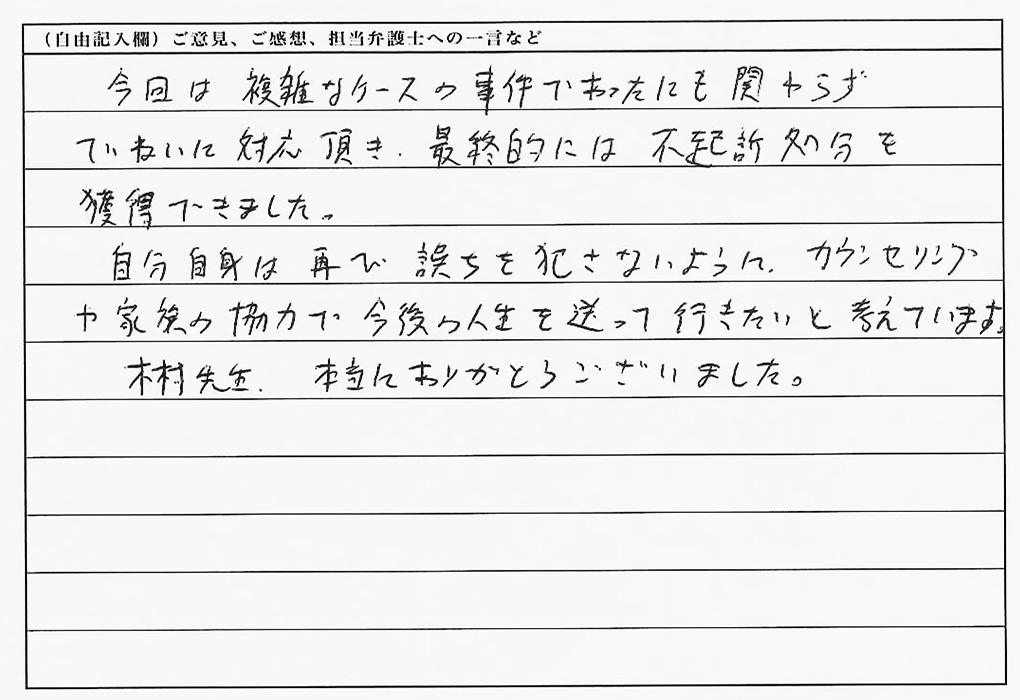 （自由記入欄）ご意見、ご感想、担当弁護士への一言など
今回は複雑なケースの事件であったにも関わらず
ていねいに対応頂き、最終的には不起訴処分を
獲得できました。
自分自身は再び誤ちを犯さないように、カウンセリング
や家族の協力で今後の人生を送って行きたいと考えています。
木村先生、本当にありがとうございました。